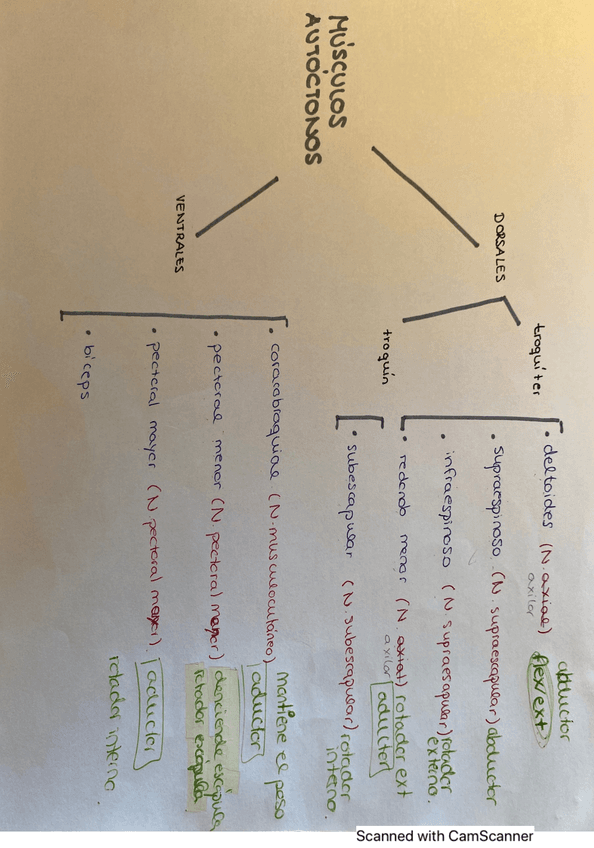 MÚSCULOS
AUTÓCTONOS
DORSALES
troquiter
• deltoides (N. axial) abductor
axilar
flex/ext
• supraespinoso (N. supraescapular) abductor
• infraespinoso (N supraescapular) rotador
externo.
• redondo menor (N. axial) rotador ext
axilar
aductor
troquín
• subescapular (N. subescapular) rotador
interno.
VENTRALES
• coracobraquial (N. musculocutáneo) mantiene el peso
aductor
• pectoral menor (N. pectoral) desciende escápula
rotador escápula
• pectoral mayor (N pectoral).
aductor
rotador interno.
• bíceps
Scanned with CamScanner